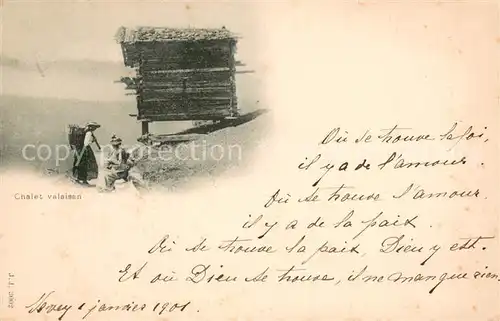 Où se trouve la foi,
il y a de l'amour.
Où se trouve l'amour.
il y a de la paix.
Où se trouve la paix, Dieu y est.
Et où Dieu se trouve, il ne manque rien.
Chalet valaisan
www.cparama.com
J. J. 3002
Vevey 1 janvier 1901.